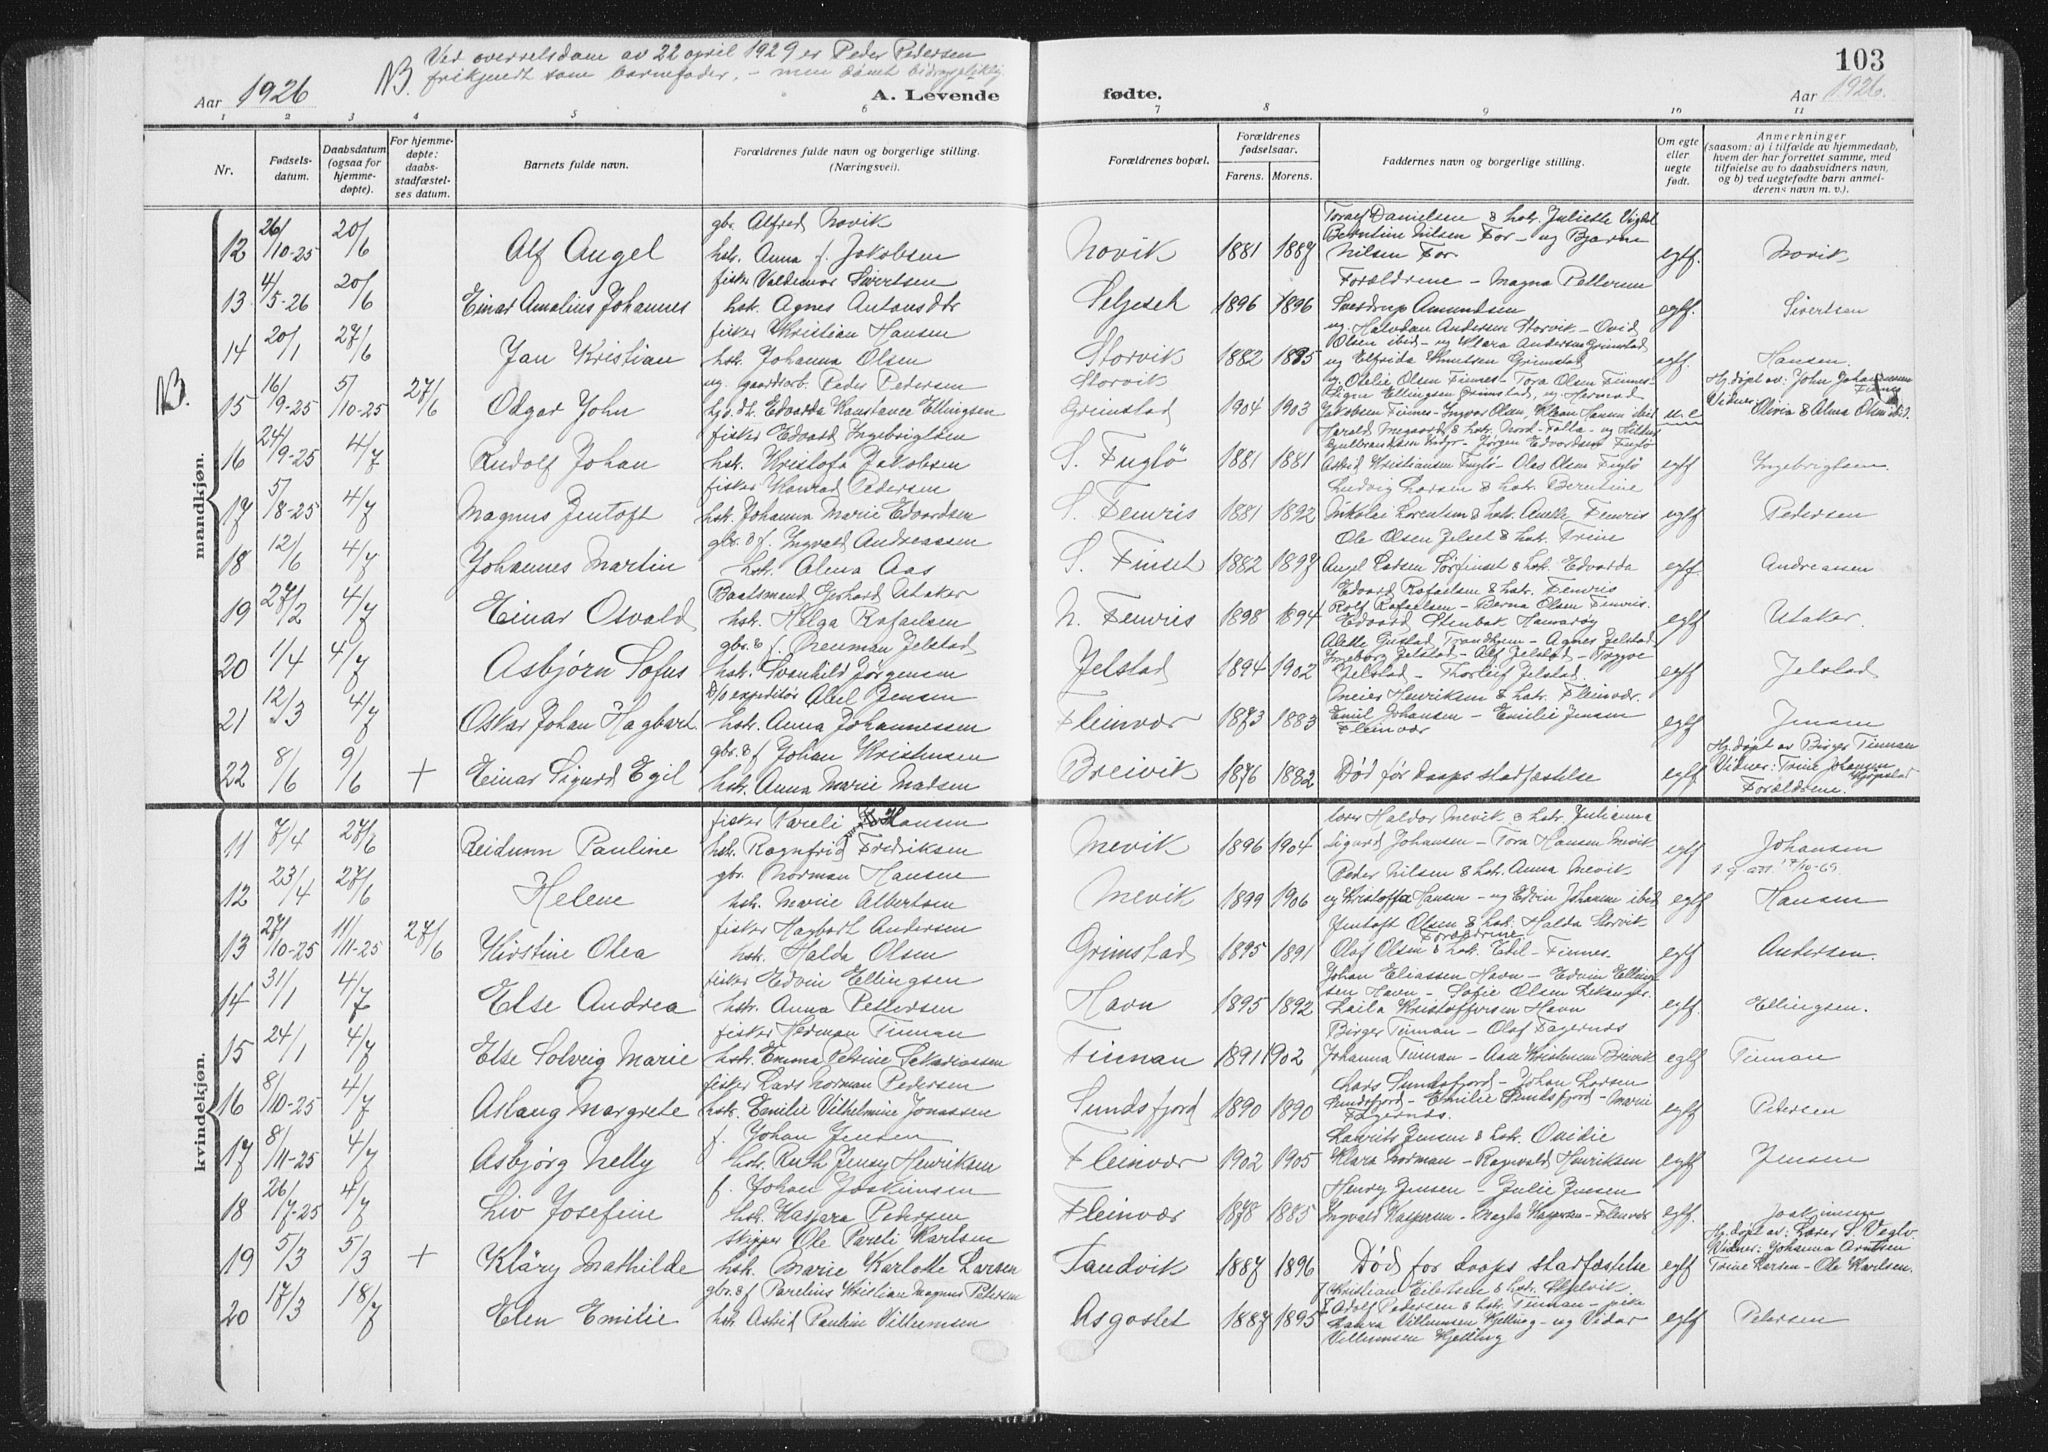 Ved overretsdom av 22 april 1929 er Peder Pedersen
NB. frikjendt som barnefader, – men dömt bidragspliktig.
103
Aar 1926
A. Levende fødte.
Aar 1926.
1 2 3 4 5 6 7 8 9 10 11
Nr.
Fødsels-
datum.
Daabsdatum
(ogsaa for
hjemme-
døpte).
For hjemme-
døpte:
daabs-
stadfæstel-
ses datum.
Barnets fulde navn.
Forældrenes fulde navn og borgerlige stilling.
(Næringsvei).
Forældrenes bopæl.
Forældrenes
fødselsaar.
Farens. Morens.
Faddernes navn og borgerlige stilling.
Om egte
eller
uegte
født.
Anmerkninger
(saasom: a) i tilfælde av hjemmedaab,
hvem der har forrettet samme, med
tilføielse av to daabsvidners navn,
og b) ved uegtefødte barn anmel-
derens navn m. v.).
mandkjøn.
12 26/10-25 20/6 Alf Angel
gbr. Alfred Novik
hstr. Anna f. Jakobsen
Novik 1881 1887
Toralf Danielsen & hstr. Juliette
Berntine Nilsen For – og Bjarne
Nilsen For
egtf. Novik
13 4/5-26 20/6 Einar Amalius Johannes
fisker Valdemar Sivertsen
hstr. Agnes Antonsdtr
Seljeseth 1896 1896
Forældrene – Magna Pettersen
Sverdrup Amundsen
egtf. Sivertsen
14 20/1 27/6 Jan Kristian
fisker Kristian Hansen
hstr. Johanna Olsen
Storvik 1882 1885
ug. Halvdan Andersen Storvik – Ovid
Olsen ibid – ug Klara Andersen Grimstad
ug Elfrida Knutsen Grimstad
egtf. Hansen
NB.
15 16/9-25 5/10-25 27/6 Odgar John
ug. gaardsarb. Peder Pedersen
Edvarda Konstance Ellingsen
Storvik
Grimstad 1904 1903
ug. Otelie Olsen Finnes – Tora Olsen Finnes –
Signe Ellingsen Grimstad, ug Herman
Jakobsen Finnes – Ingvar Olsen, Klaus Hansen ibid
u.e.
Hj.døpt av: John Johannessen
Finnes
Vidner: Olivia & Alma Olsen ibid.
16 24/9-25 4/7 Rudolf Johan
fisker Edvard Ingebrigtsen
hstr. Kristofa Jakobsen
S. Fuglö 1881 1881
Harald Megaard & hstr. Nord-Falla – og Hilda
Gulbrandsen – Jørgen Edvardsen Fuglö
Astrid Kristiansen Fuglö – Olai Olsen Fuglö
egtf Ingebrigtsen.
17 5/8-25 4/7 Magnus Jentoft
fisker Konrad Pedersen
hstr. Johanna Marie Edvardsen
S. Fenris 1881 1892
Ludvig Larsen & hstr. Berntine
Nikolai Lorentsen & hstr. Anette Fenris
egtf Pedersen
18 12/6 4/7 Johannes Martin
gbr. & f. Ingvald Andreassen
hstr. Alma Aas
S. Finset 1882 1897
Ole Olsen Jelset & hstr. Trine
Angel Larsen Sörfinset & hstr. Edvarda
egtf. Andreassen
19 27/2 4/7 Einar Osvald
Baatsmand Gerhard Utaker
hstr. Helga Rafaelsen
N. Fenris 1898 1894
Edvard Rafaelsen & hstr. Fenris
Rolf Rafaelsen – Berna Olsen Fenris.
Edvard Stenbak Hamarøy
egtf Utaker.
20 1/4 4/7 Asbjørn Sofus
gbr. & f. Örenman Jelstad
hstr. Svanhild Jørgensen
Jelstad 1894 1902
Alette Gustad Trondhjem – Agnes Jelstad
Ingeborg Jelstad – Alf Jelstad – Trygve
Jelstad – Thorleif Jelstad.
egtf Jelstad
21 12/3 4/7 Oskar Johan Hagbart
D/S expeditör Abel Jensen
hstr. Anna Johannessen
Fleinvær 1873 1883
Meier Henriksen & hstr. Fleinvær.
Emil Johansen – Emilie Jensen
Fleinvær
egtf Jensen
22 8/6 9/6 + Einar Sigurd Egil
gbr. & f Johan Kristensen
hstr. Anna Marie Madsen
Breivik 1876 1882
Död för daaps stadfæstelse
egtf.
Hj.döpt av Birger Tinnan
Vidner: Trine Johansen
Forældrene.
kvindekjøn.
11 7/4 27/6 Reidunn Pauline
fisker Pareli Hansen
hstr. Ragnfrid Fredriksen
Mevik 1896 1904
lærer Haldor Mevik & hstr. Julianna
Sigurd Johansen – Tora Hansen Mevik
egtf Johansen
12 23/4 27/6 Helene
gbr. Norman Hansen
hstr. Marie Albertsen
Mevik 1899 1906
Peder Nilsen & hstr. Anna Mevik
ug Kristoffa Hansen – ug Edvin Johansen ibid
egtf Hansen
13 27/10-25 11/11-25 27/6 Kirstine Olea
fisker Hagbart Andersen
hstr. Halda Olsen
Grimstad 1895 1891
Jentoft Olsen & hstr. Halda Storvik
Forældrene –
Olaf Olsen & hstr. Edel – Finnes.
egtf Andersen.
14 31/1 4/7 Else Andrea
fisker Edvin Ellingsen
hstr. Anna Pettersen
Havn 1895 1892
Johan Eliassen Havn – Edvin Elling-
sen Havn – Sofie Olsen Lekanger.
Laila Kristoffersen Havn
egtf. Ellingsen.
15 24/1 4/7 Else Solveig Marie
fisker Herman Tinnan
hstr. Emma Petrine Sakariassen
Tinnan 1891 1902
Birger Tinnan – Olaf Fagernes
Johanna Tinnan – Aase Kristensen Breivik
egtf Tinnan
16 8/10-25 4/7 Aslaug Margrete
fisker Lars Norman Pedersen
hstr. Emilie Vilhelmine Jonassen
Sundsfjord 1890 1890
Lars Sundsfjord – Johan Larsen
Sundsfjord – Emilie Sundsfjord – Marie
Fagernes.
egtf Petersen
17 8/11-25 4/7 Asbjørg Nelly
f. Johan Jensen
hstr. Ruth Jenny Henriksen
Fleinvær 1902 1905
Laurits Jensen & hstr. Ovidie
Klara Norman – Ragnvald Henriksen
egtf Jensen
18 26/7-25 4/7 Liv Josefine
f. Johan Joakimsen
hstr. Kaspara Pedersen
Fleinvær 1878 1885
Henry Jensen – Julie Jensen
Ingvald Kaspersen – Magda Kaspersen – Fleinvær
egtf. Joakimsen
19 5/3 5/3 + Kläry Mathilde
skipper Ole Pareli Karlsen
hstr. Marie Karlotte Larsen
Sandvik 1887 1896
Död for daaps stadfæstelse
egtf
Hj.döpt av: Lærer S. Veglv.
Vidner: Johanna Arntsen
Trine Larsen – Ole Karlsen.
20 17/3 18/7 Elen Emilie
gbr. & f Parelius Kristian Magnus Petersen
hstr Astrid Pauline Villumsen
Asgostet 1887 1895
Kristian Eilertsen & hstr. Skjelvik
Adolf Pedersen & hstr. Tinnan – pike
Laura Villumsen Kjelling – ug Vidar
Villumsen Kjelling
egtf Petersen